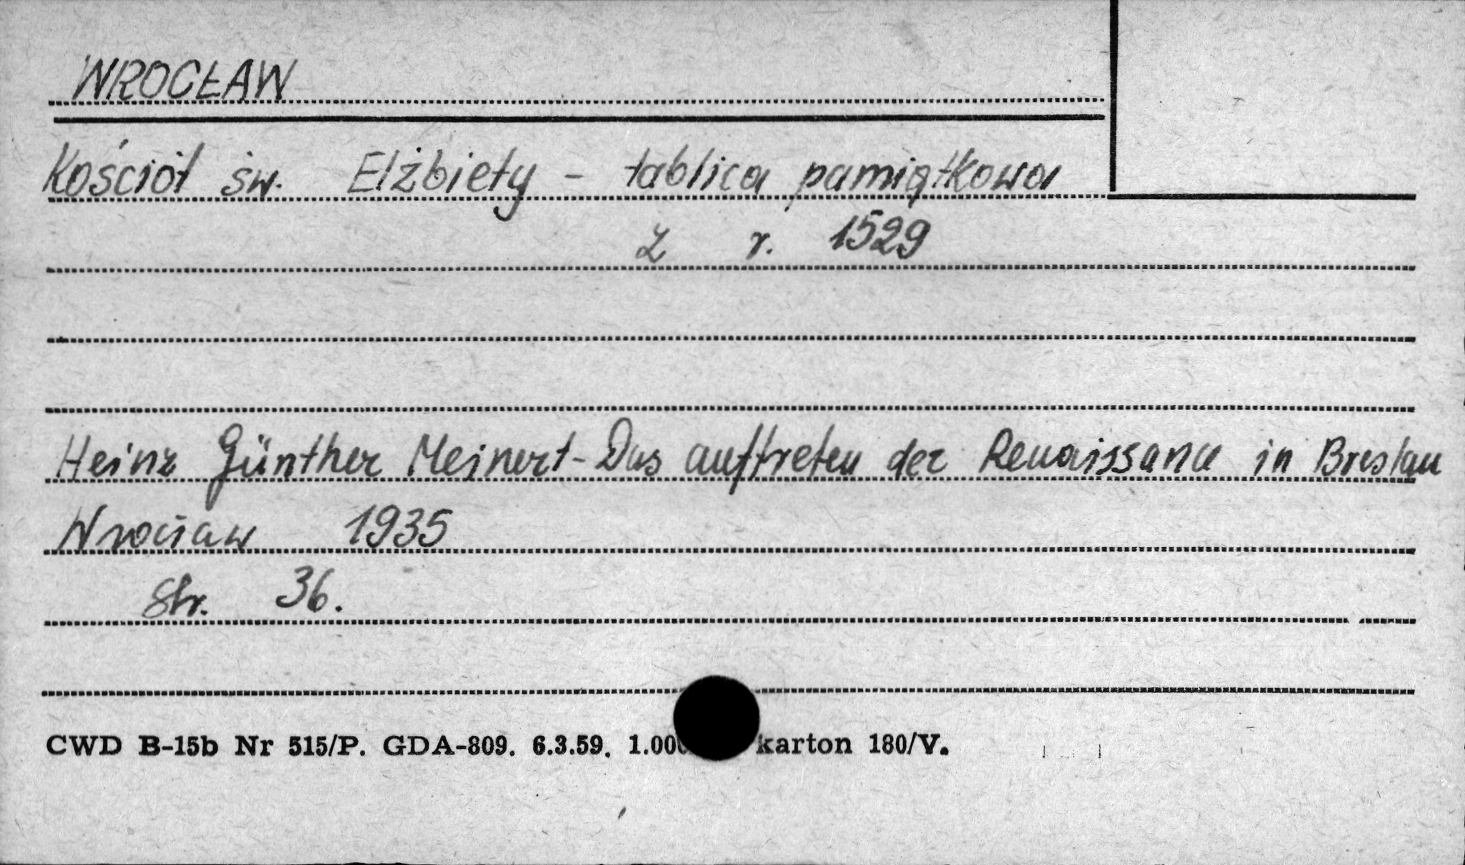 WROCŁAW
Kościół św. Elżbiety - tablica pamiątkowa
z r. 1529
Heinz Günther Meinert - Das auftreten der Renaissance in Breslau
Wrocław 1935
Str. 36.
CWD B-15b Nr 515/P. GDA-809. 6.3.59. karton 180/V.